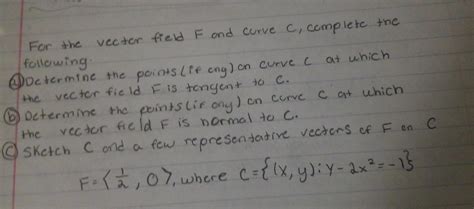 For the vector field F and curve C, complete the
following:
ⓐ Determine the points (if any) on curve C at which
the vector field F is tangent to C.
ⓑ Determine the points (if any) on curve C at which
the vector field F is normal to C.
ⓒ Sketch C and a few representative vectors of F on C
F=⟨1/2, 0⟩, where C={(x,y): y-2x²=-1}